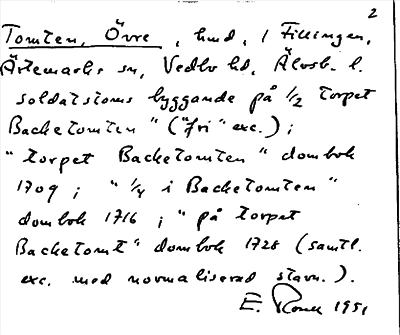 2
Tomten, Övre, hmd, i Fillingen,
Ärtemarks sn, Vedbo hd, Älvsb. l.
soldatstoms byggande på 1/2 torpet
Backetomten" ("fri" exc.);
"torpet Backetomten" dombok
1709; "1/4 i Backetomten"
dombok 1716; "på torpet
Backetomt" dombok 1728 (samtl.
exc. med normaliserad stavn.).
E. 1951